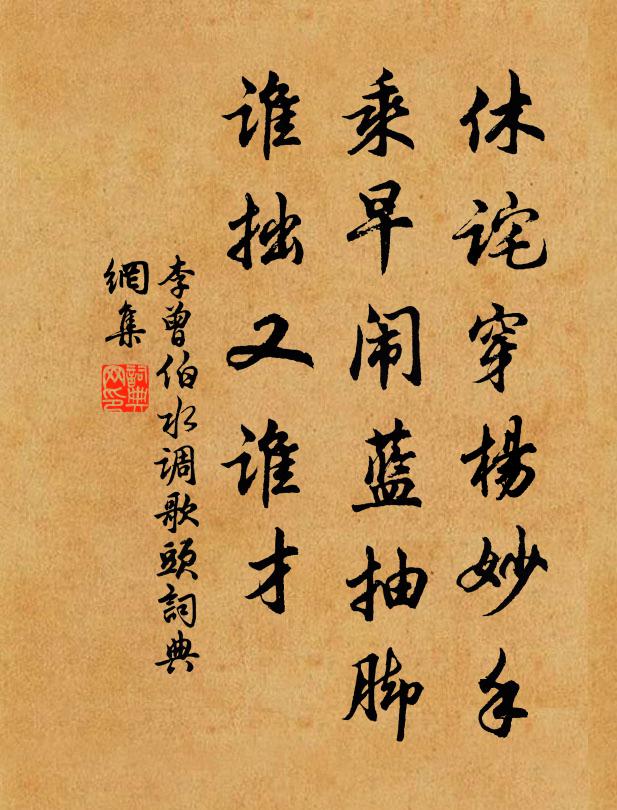 休诧穿楊妙手
乘早闹蓝抽脚
谁拙又谁才
李曾伯水调歌頭詞典
網集
詞典網印